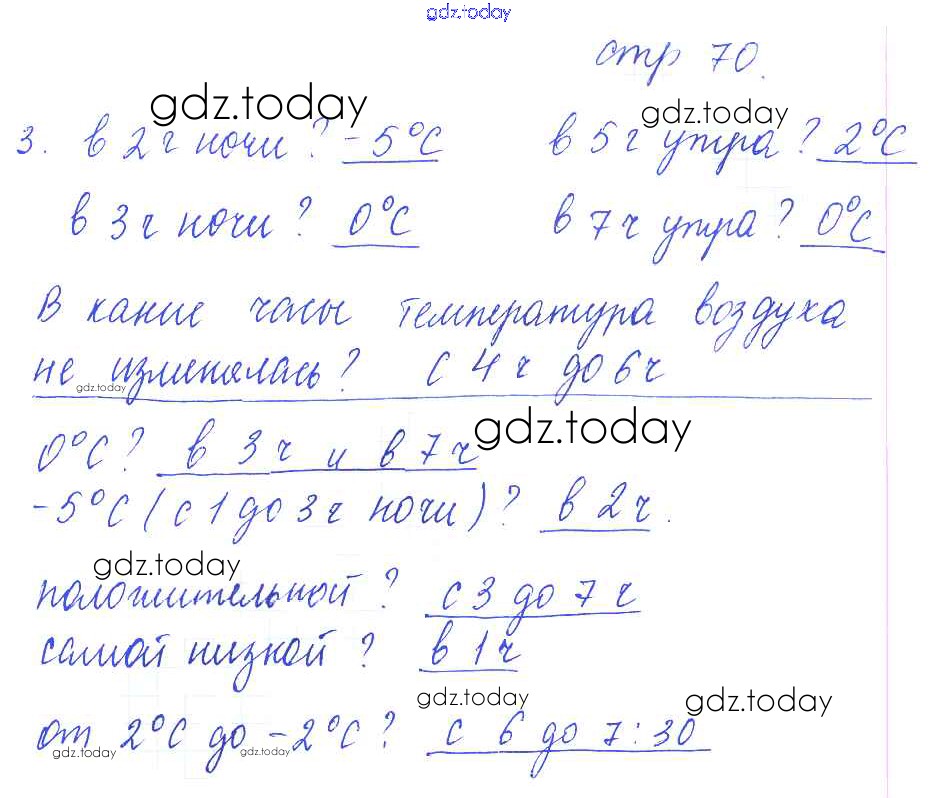 gdz.today
стр 70.
gdz.today gdz.today
3. в 2 ч ночи? -5°C в 5 ч утра? 2°C
в 3 ч ночи? 0°C в 7 ч утра? 0°C
В какие часы температура воздуха
не изменялась? с 4 ч до 6 ч
gdz.today
gdz.today
0°C? в 3 ч и в 7 ч
-5°C (с 1 до 3 ч ночи)? в 2 ч.
gdz.today
положительной? с 3 до 7 ч
самой низкой? в 1 ч
gdz.today gdz.today
от 2°C до -2°C? с 6 до 7:30
gdz.today